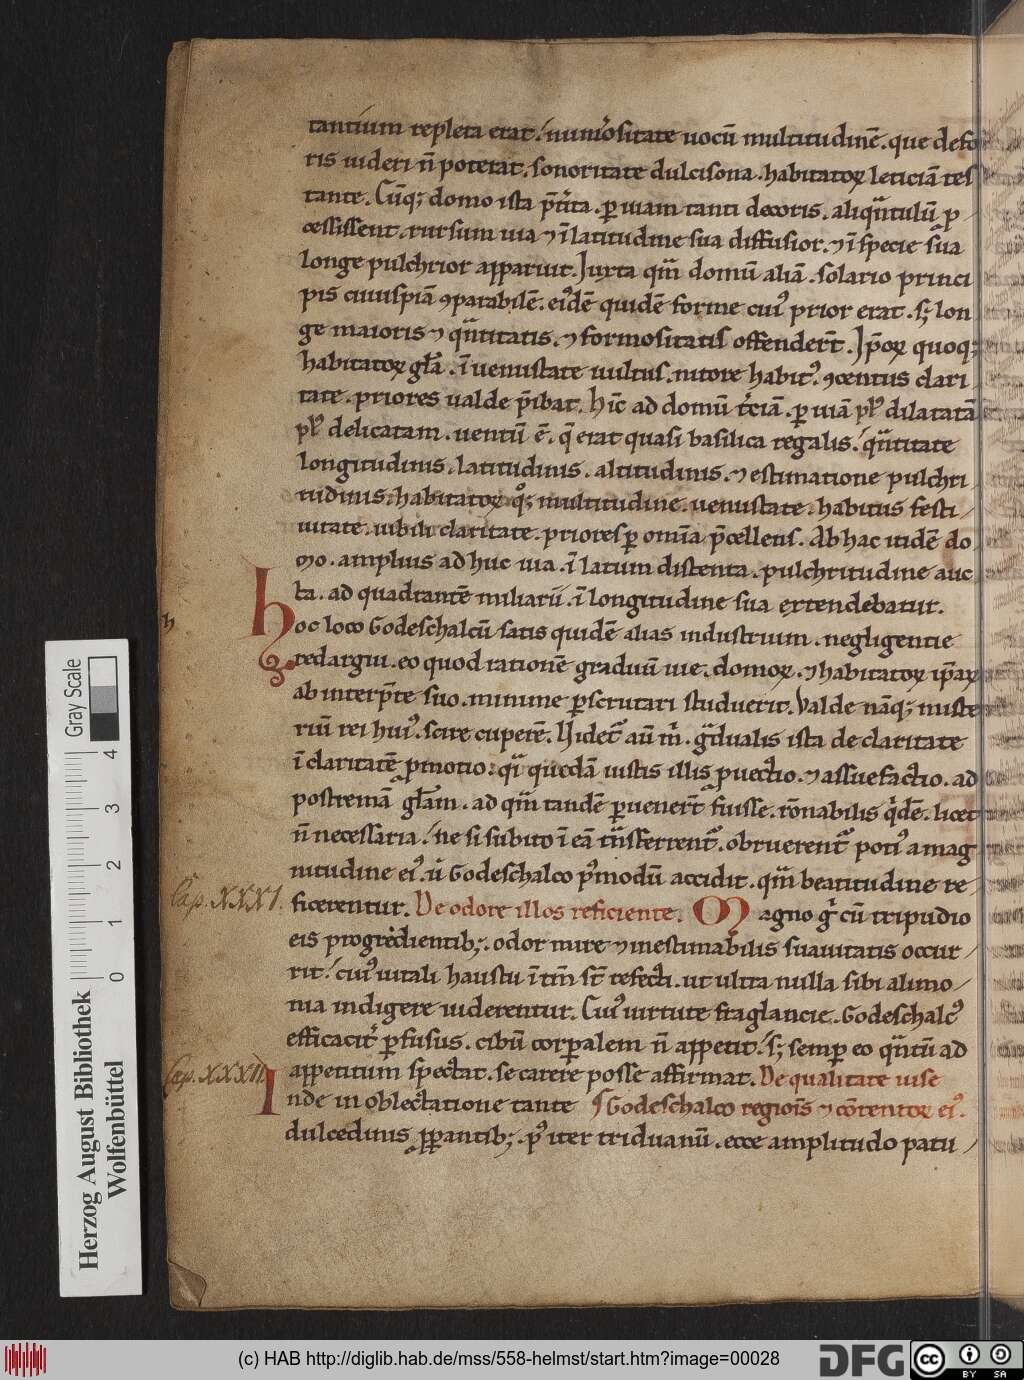 tantium repleta erat. numͦositate uocū multitudinē. que defo
ris uideri n̄ poterat. sonoritate dulcisona. habitatoꝝ leticiā tes
tante. Cūq; domo ista p̄t̾ita. ꝑ uiam tanti decoris. aliqᷓntulū ꝓ
cessissent. rursum uia ⁊ ī latitudine sua diffusior. ⁊ ī specie sua
longe pulchrior apparuit. Juxta qᷓm domū aliā. solario princi
pis cuiuspiā ꝯparabilē. eiꝰdē quidē forme cuiꝰ prior erat. s; lon
ge maioris ⁊ qᷓntitatis. ⁊ formositatis offender̄t. Ip̄oꝝ quoq;
habitatoꝝ gl̄a. ī uenustate uultus. nitore habitꝰ. ꝯcentus clari
tate. priores ualde p̄ibat. Hīc ad domū t̾ciā. ꝑ uiā pl̾ dilatatā
pl̾ delicatam. uentū ē. q̄ erat quasi basilica regalis. qᷓntitate
longitudinis. latitudinis. altitudinis. ⁊ estimatione pulchri
tudinis. habitatoꝝ qͦ; multitudine. uenustate. habitus festi
uitate. uibili claritate. priores ꝑ om̄ia p̄cellens. Ab hac itidē do
mo. amplius ad huc uia. ī latum distenta. pulchritudine auc
ta. ad quadrantē miliarii. ī longitudine sua extendebatur.
Hoc loco Godeschalcū satis quidē alias industrium. negligentie
redargui. eo quod rationē graduū uie. domoꝝ. ⁊ habitatoꝝ ip̄aꝝ
ab interp̄te suo. minime ꝑscrutari studuerit. Valde nāq; miste
riū rei huiꝰ. scire cuperē. Videt᷑ aū m̍. gᷓdualis ista de claritate
ī claritatē ꝓmotio. qᷓ quedā iustis illis ꝓuectio. ⁊ assuefactio. ad
postremā gl̄am. ad qᷓm tandē ꝑuener̄t fuisse. rōnabilis q̍dē. licet
n̄ necessaria. ne si subito ī eā tᷓnsferrent᷑. obruerent᷑ potiꝰ a mag
nitudine eiꝰ. u̍ Godeschalco pꝰmodū accidit. qᷓm beatitudine re
Cap. XXXI. ficerentur. De odore illos reficiente. Magno g̍ cū tripudio
eis progredientib;. odor mire ⁊ inestimabilis suauitatis occur
rit. cuiꝰ uitali haustu ī tm̄ st̄ refecti. ut ultra nulla sibi alimo
nia indigere uiderentur. Cuiꝰ uirtute fraglancie. Godeschalcꝰ
efficacit̾ ꝑfusus. cibū corꝑalem n̄ appetit. s; semꝑ eo qᷓntū ad
Cap. XXXII. appetitum spectat. se carere posse affirmat. De qualitate uise
Inde in oblectatione tante Godeschalco regiōis ⁊ cōtentoꝝ eiꝰ.
dulcedinis ꝓꝑantib;. pꝰ iter triduanū. ecce amplitudo patu
h
Gray Scale
0 1 2 3 4
Herzog August Bibliothek
Wolfenbüttel
(c) HAB http://diglib.hab.de/mss/558-helmst/start.htm?image=00028
DFG
cc BY SA